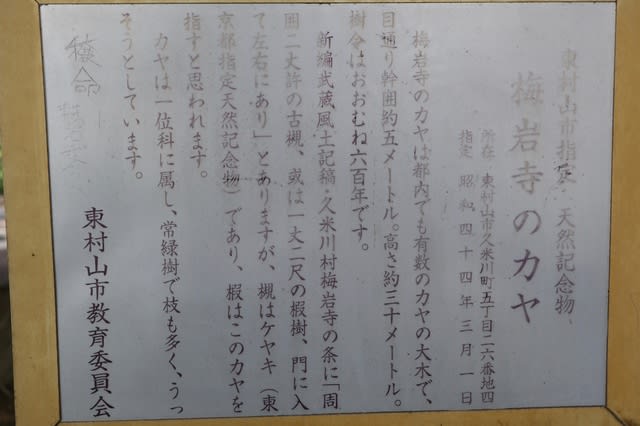 東村山市指定 天然記念物
梅岩寺のカヤ
所在 東村山市久米川町五丁目二六番地四
指定 昭和四十四年三月一日
梅岩寺のカヤは都内でも有数のカヤの大木で、
目通り幹囲約五メートル。高さ約三十メートル。
樹令はおおむね六百年です。
新編武蔵風土記稿・久米川村梅岩寺の条に「周
囲二丈許の古槻、或は一丈二尺の椵樹、門に入
て左右にあり」とありますが、槻はケヤキ(東
京都指定天然記念物)であり、椵はこのカヤを
指すと思われます。
カヤは一位科に属し、常緑樹で枝も多く、うっ
そうとしています。
東村山市教育委員会